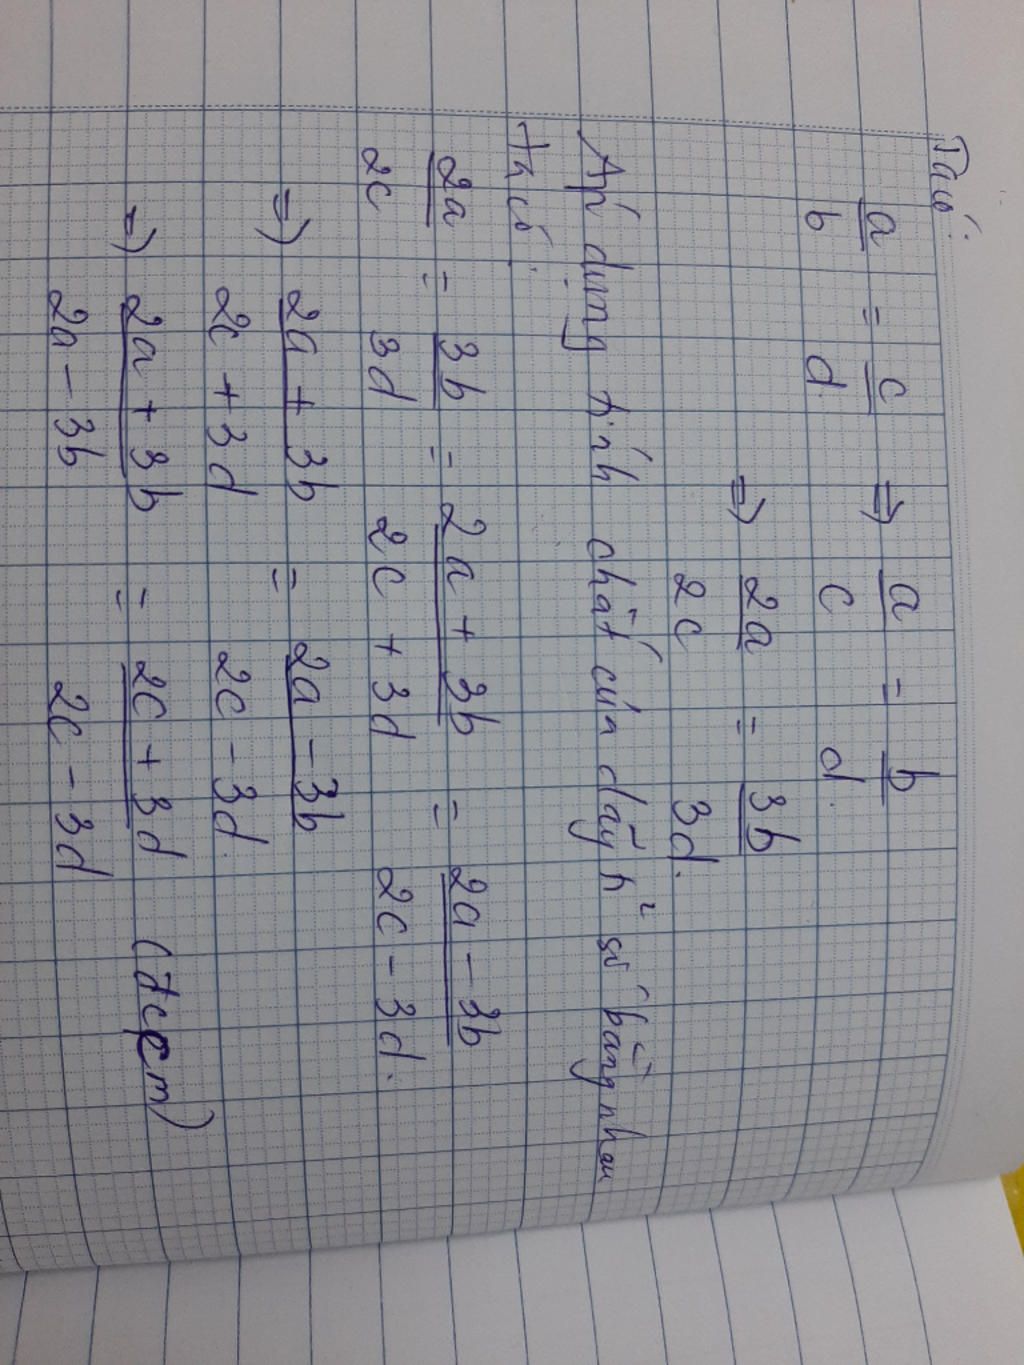 Ta có:
a/b = c/d ⇒ a/c = b/d.
⇒ 2a/2c = 3b/3d.
Áp dụng tính chất của dãy h² số bằng nhau
ta có:
2a/2c = 3b/3d = 2a + 3b/2c + 3d = 2a - 3b/2c - 3d.
⇒ 2a + 3b/2c + 3d = 2a - 3b/2c - 3d.
⇒ 2a + 3b/2a - 3b = 2c + 3d/2c - 3d (đccm)